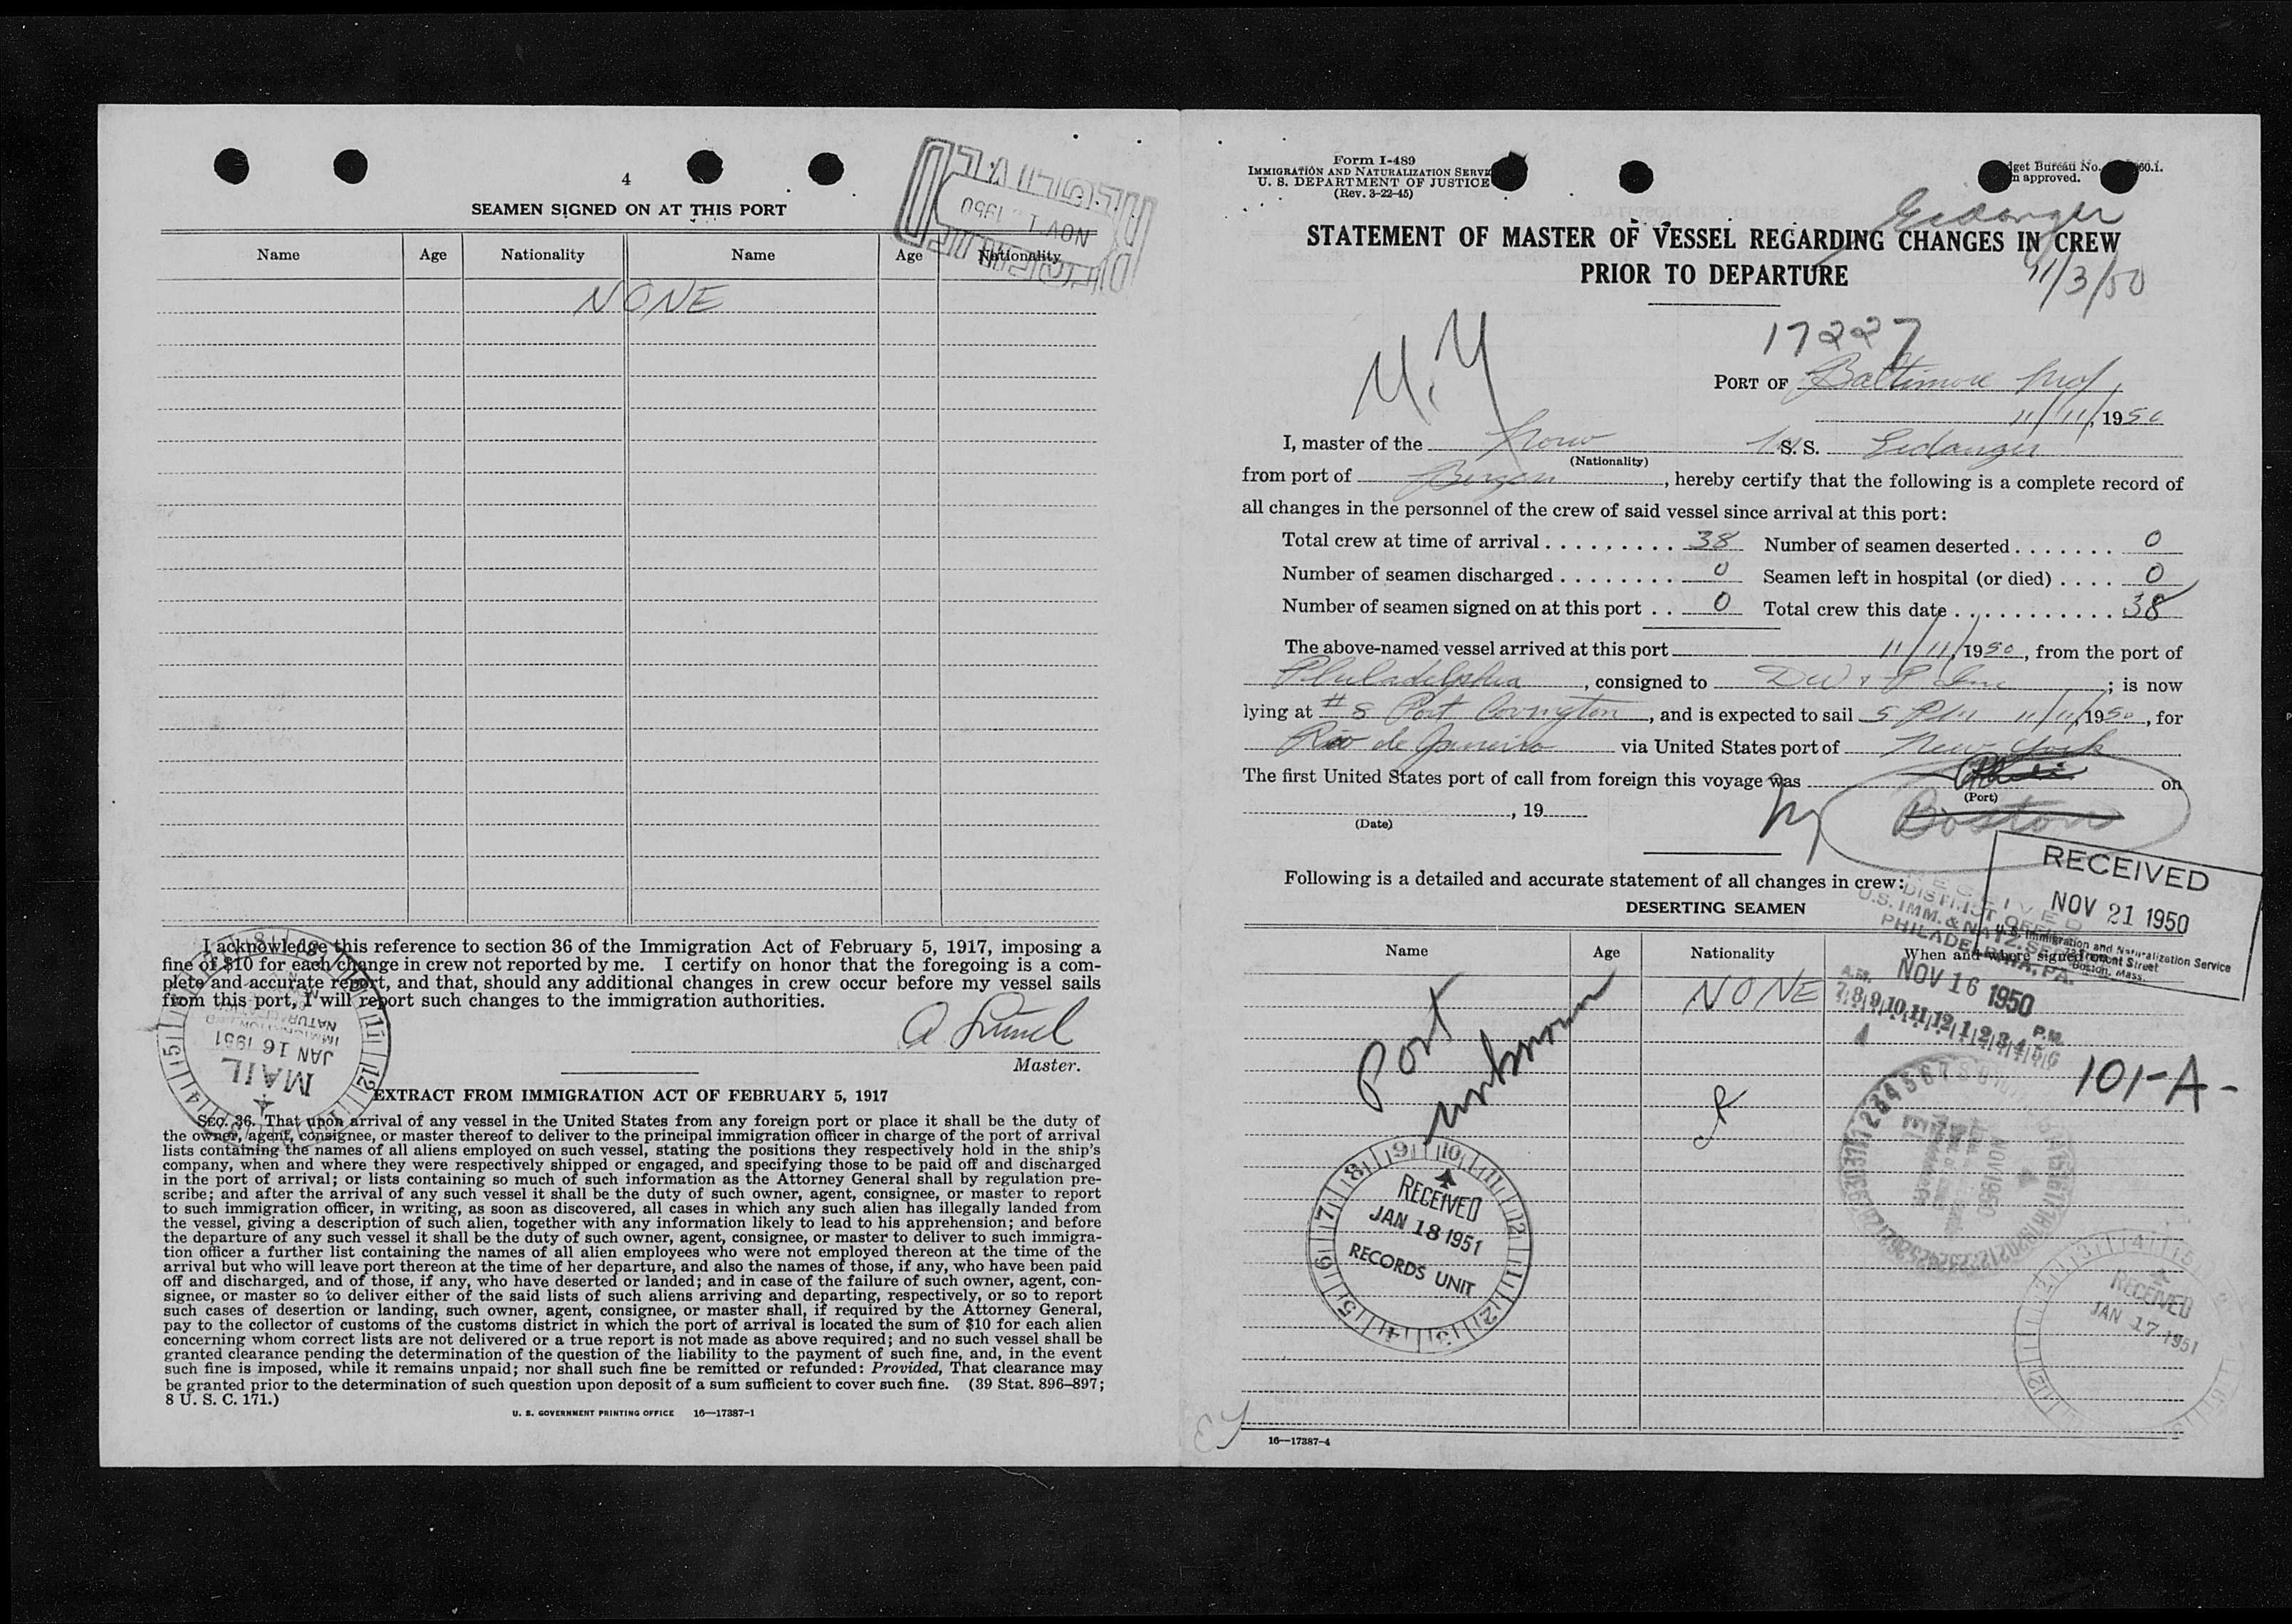 4
SEAMEN SIGNED ON AT THIS PORT
NOV 1 1950
Name Age Nationality Name Age Nationality
NONE
I acknowledge this reference to section 36 of the Immigration Act of February 5, 1917, imposing a
fine of $10 for each change in crew not reported by me. I certify on honor that the foregoing is a com-
plete and accurate report, and that, should any additional changes in crew occur before my vessel sails
from this port, I will report such changes to the immigration authorities.
Master.
MAIL
JAN 16 1951
EXTRACT FROM IMMIGRATION ACT OF FEBRUARY 5, 1917
SEC. 36. That upon arrival of any vessel in the United States from any foreign port or place it shall be the duty of
the owner, agent, consignee, or master thereof to deliver to the principal immigration officer in charge of the port of arrival
lists containing the names of all aliens employed on such vessel, stating the positions they respectively hold in the ship's
company, when and where they were respectively shipped or engaged, and specifying those to be paid off and discharged
in the port of arrival; or lists containing so much of such information as the Attorney General shall by regulation pre-
scribe; and after the arrival of any such vessel it shall be the duty of such owner, agent, consignee, or master to report
to such immigration officer, in writing, as soon as discovered, all cases in which any such alien has illegally landed from
the vessel, giving a description of such alien, together with any information likely to lead to his apprehension; and before
the departure of any such vessel it shall be the duty of such owner, agent, consignee, or master to deliver to such immigra-
tion officer a further list containing the names of all alien employees who were not employed thereon at the time of the
arrival but who will leave port thereon at the time of her departure, and also the names of those, if any, who have been paid
off and discharged, and of those, if any, who have deserted or landed; and in case of the failure of such owner, agent, con-
signee, or master so to deliver either of the said lists of such aliens arriving and departing, respectively, or so to report
such cases of desertion or landing, such owner, agent, consignee, or master shall, if required by the Attorney General,
pay to the collector of customs of the customs district in which the port of arrival is located the sum of $10 for each alien
concerning whom correct lists are not delivered or a true report is not made as above required; and no such vessel shall be
granted clearance pending the determination of the question of the liability to the payment of such fine, and, in the event
such fine is imposed, while it remains unpaid; nor shall such fine be remitted or refunded: Provided, That clearance may
be granted prior to the determination of such question upon deposit of a sum sufficient to cover such fine. (39 Stat. 896–897;
8 U. S. C. 171.)
U. S. GOVERNMENT PRINTING OFFICE 16—17387-1
Form I-489
IMMIGRATION AND NATURALIZATION SERVI
U. S. DEPARTMENT OF JUSTICE
(Rev. 3-22-45)
dget Bureau No. 60.1.
n approved.
Eidanger
STATEMENT OF MASTER OF VESSEL REGARDING CHANGES IN CREW
PRIOR TO DEPARTURE
11/3/50
N.Y
17227
PORT OF Baltimore Md,
11/11, 1950
I, master of the Norw S. S. Eidanger
(Nationality)
from port of Bergen, hereby certify that the following is a complete record of
all changes in the personnel of the crew of said vessel since arrival at this port:
Total crew at time of arrival 38 Number of seamen deserted 0
Number of seamen discharged 0 Seamen left in hospital (or died) 0
Number of seamen signed on at this port 0 Total crew this date 38
The above-named vessel arrived at this port 11/11, 1950, from the port of
Philadelphia, consigned to DW & P Inc; is now
lying at #8 Port Covington, and is expected to sail 5 PM 11/11, 1950, for
Rio de Janeiro via United States port of New York
The first United States port of call from foreign this voyage was Phila on
(Port)
, 19
(Date)
Ny
Boston
Following is a detailed and accurate statement of all changes in crew:
DESERTING SEAMEN
RECEIVED
NOV 21 1950
U.S. Immigration and Naturalization Service
Boston, Mass.
RECEIVED
DISTRICT OFFICE
U.S. IMM. & NATZ. SE
PHILADELPHIA, PA.
Name Age Nationality When and where signed on
NONE
A.M. NOV 16 1950 P.M.
7 8 9 10 11 12 1 2 3 4 5 6
Port
unknown
101-A-
RECEIVED
JAN 18 1951
RECORDS UNIT
NOV 1950
RECEIVED
JAN 17 1951
16—17387-4